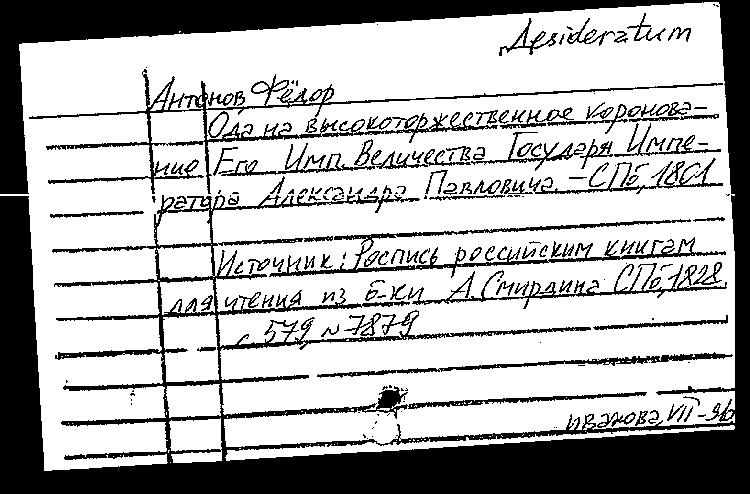 Desideratum
Антонов, Фёдор
Ода на высокоторжественное коронова-
ние Его Имп. Величества Государя Импе-
ратора Александра Павловича. - СПб, 1801
Источник: Роспись российским книгам
для чтения из б-ки А. Смирдина СПб, 1828,
с 579, № 7879
Иванова, VII-96